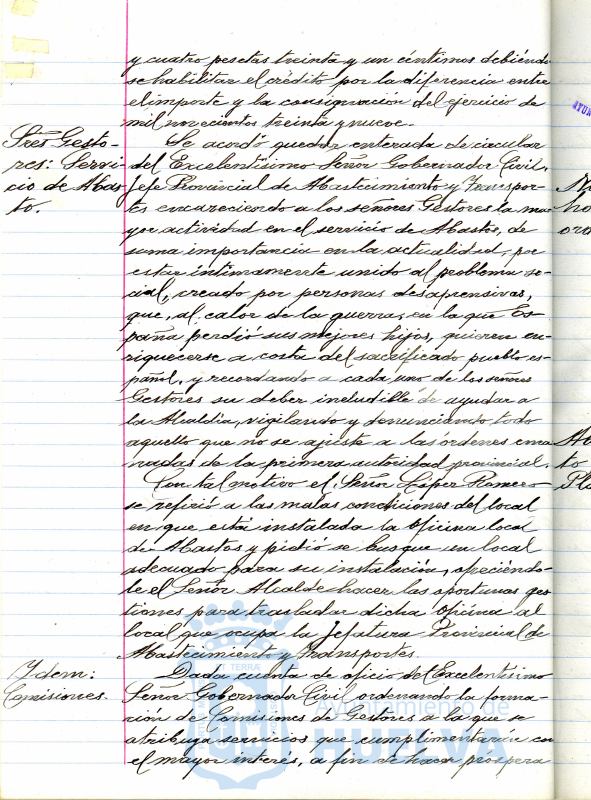 y cuatro pesetas treinta y un céntimos debiendo
se habilitar el crédito por la diferencia entre
el importe y la consignación del ejercicio de
mil novecientos treinta y nueve.
Sres Gesto-
res: Servi-
cio de Abas-
to.
Se acordó quedar enterada de circular
del Excelentísimo Señor Gobernador Civil,
Jefe Provincial de Abastecimiento y Transpor-
tes encareciendo a los señores Gestores la ma-
yor actividad en el servicio de Abastos, de
suma importancia en la actualidad, por
estar íntimamente unido al problema so-
cial, creado por personas desaprensivas,
que, al calor de la guerra, en la que Es-
paña perdió sus mejores hijos, quieren en-
riquecerse a costa del sacrificado pueblo es-
pañol, y recordando a cada uno de los señores
Gestores su deber ineludible de ayudar a
la Alcaldía, vigilando y denunciando todo
aquello que no se ajuste a las órdenes ema-
nadas de la primera autoridad provincial.
Con tal motivo el Señor López Romero
se refirió a las malas condiciones del local
en que está instalada la Oficina local
de Abastos y pidió se busque un local
adecuado para su instalación, ofreciéndo-
le el Señor Alcalde hacer las oportunas ges-
tiones para trasladar dicha Oficina al
local que ocupa la Jefatura Provincial de
Abastecimiento y Transportes.
Ydem:
Comisiones.
Dada cuenta de oficio del Excelentísimo
Señor Gobernador Civil ordenando la forma-
ción de Comisiones de Gestores a la que se
atribuya servicios que cumplimentarán con
el mayor interés, a fin de hacer próspera
Ayuntamiento de
HUELVA